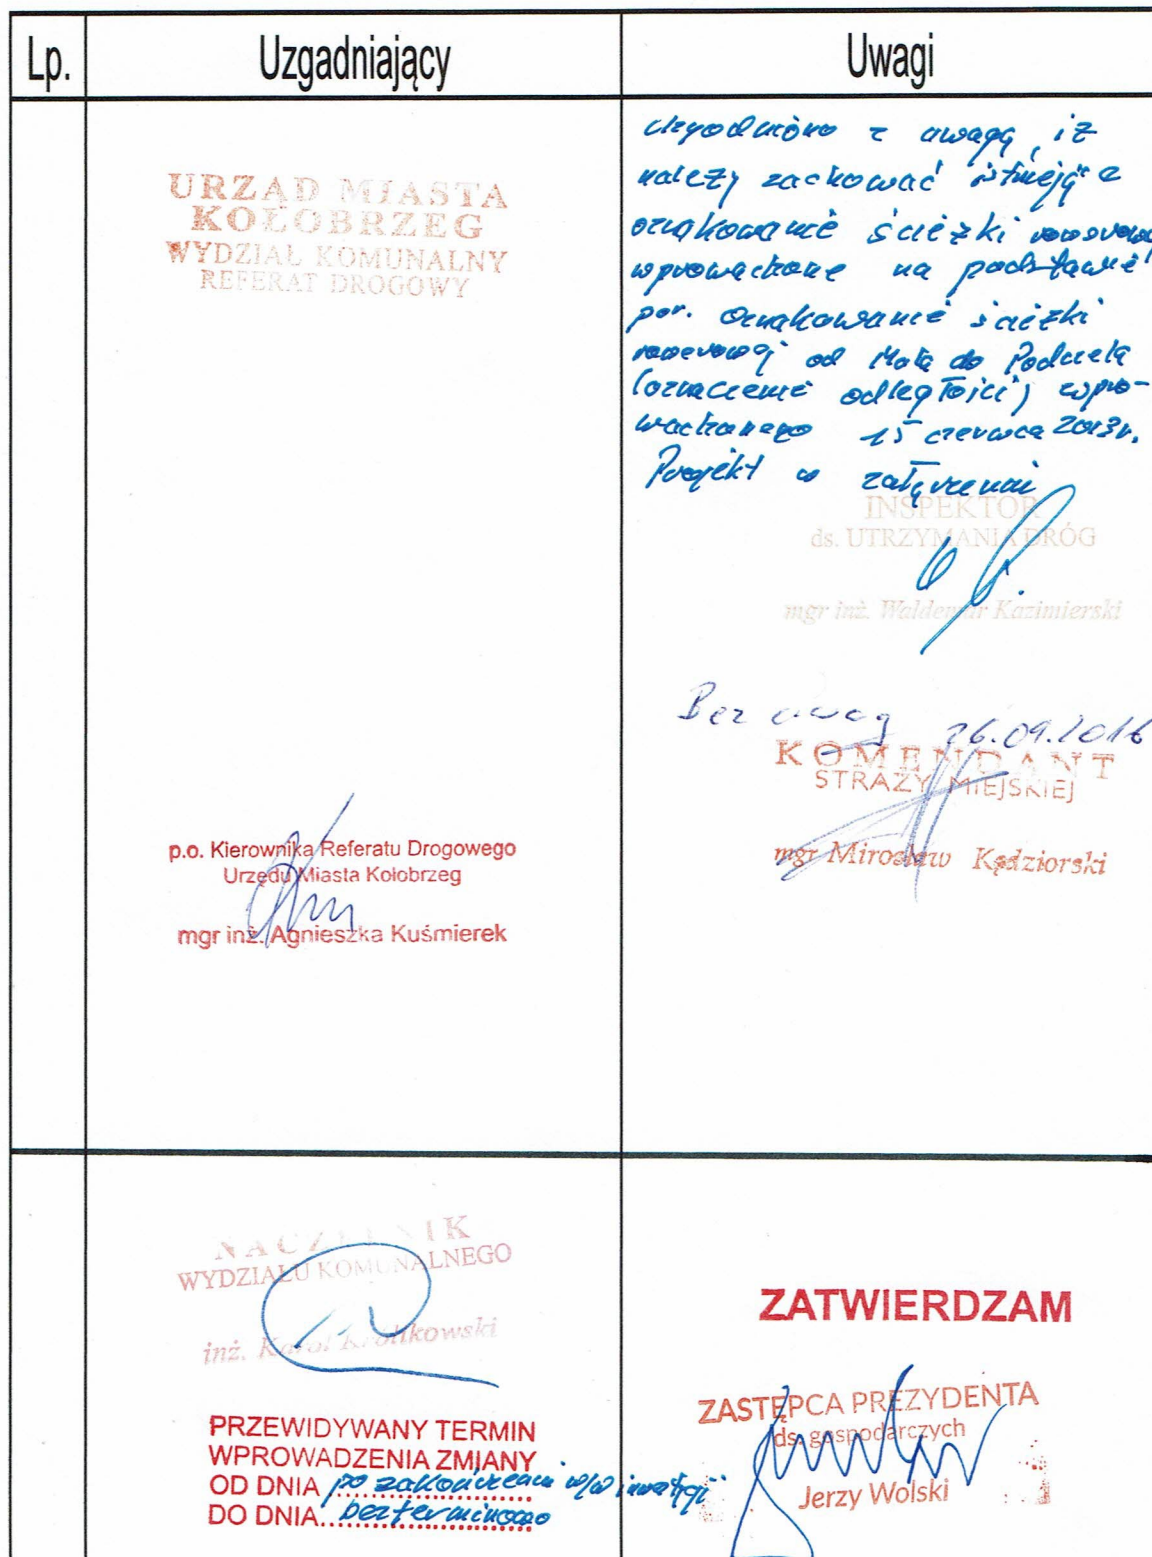 Lp. Uzgadniający Uwagi
URZĄD MIASTA
KOŁOBRZEG
WYDZIAŁ KOMUNALNY
REFERAT DROGOWY
p.o. Kierownika Referatu Drogowego
Urzędu Miasta Kołobrzeg
mgr inż. Agnieszka Kuśmierek
Uzgodniono z uwagą, iż
należy zachować istniejące
oznakowanie ścieżki rowerowej
wprowadzone na podstawie
oznakowanie ścieżki
rowerowej od do Podczela
(oznaczenie odległości) wpro-
wadzonego 15 czerwca 2013r.
Projekt w załączeniu
INSPEKTOR
ds. UTRZYMANIA DRÓG
mgr inż. Waldemar Kazimierski
Bez uwag 26.09.2016
KOMENDANT
STRAŻY MIEJSKIEJ
mgr Mirosław Kędziorski
NACZELNIK
WYDZIAŁU KOMUNALNEGO
inż. Karol Królikowski
PRZEWIDYWANY TERMIN
WPROWADZENIA ZMIANY
OD DNIA po zakończeniu w/w inwestycji
DO DNIA... bezterminowo
ZATWIERDZAM
ZASTĘPCA PREZYDENTA
ds. gospodarczych
Jerzy Wolski